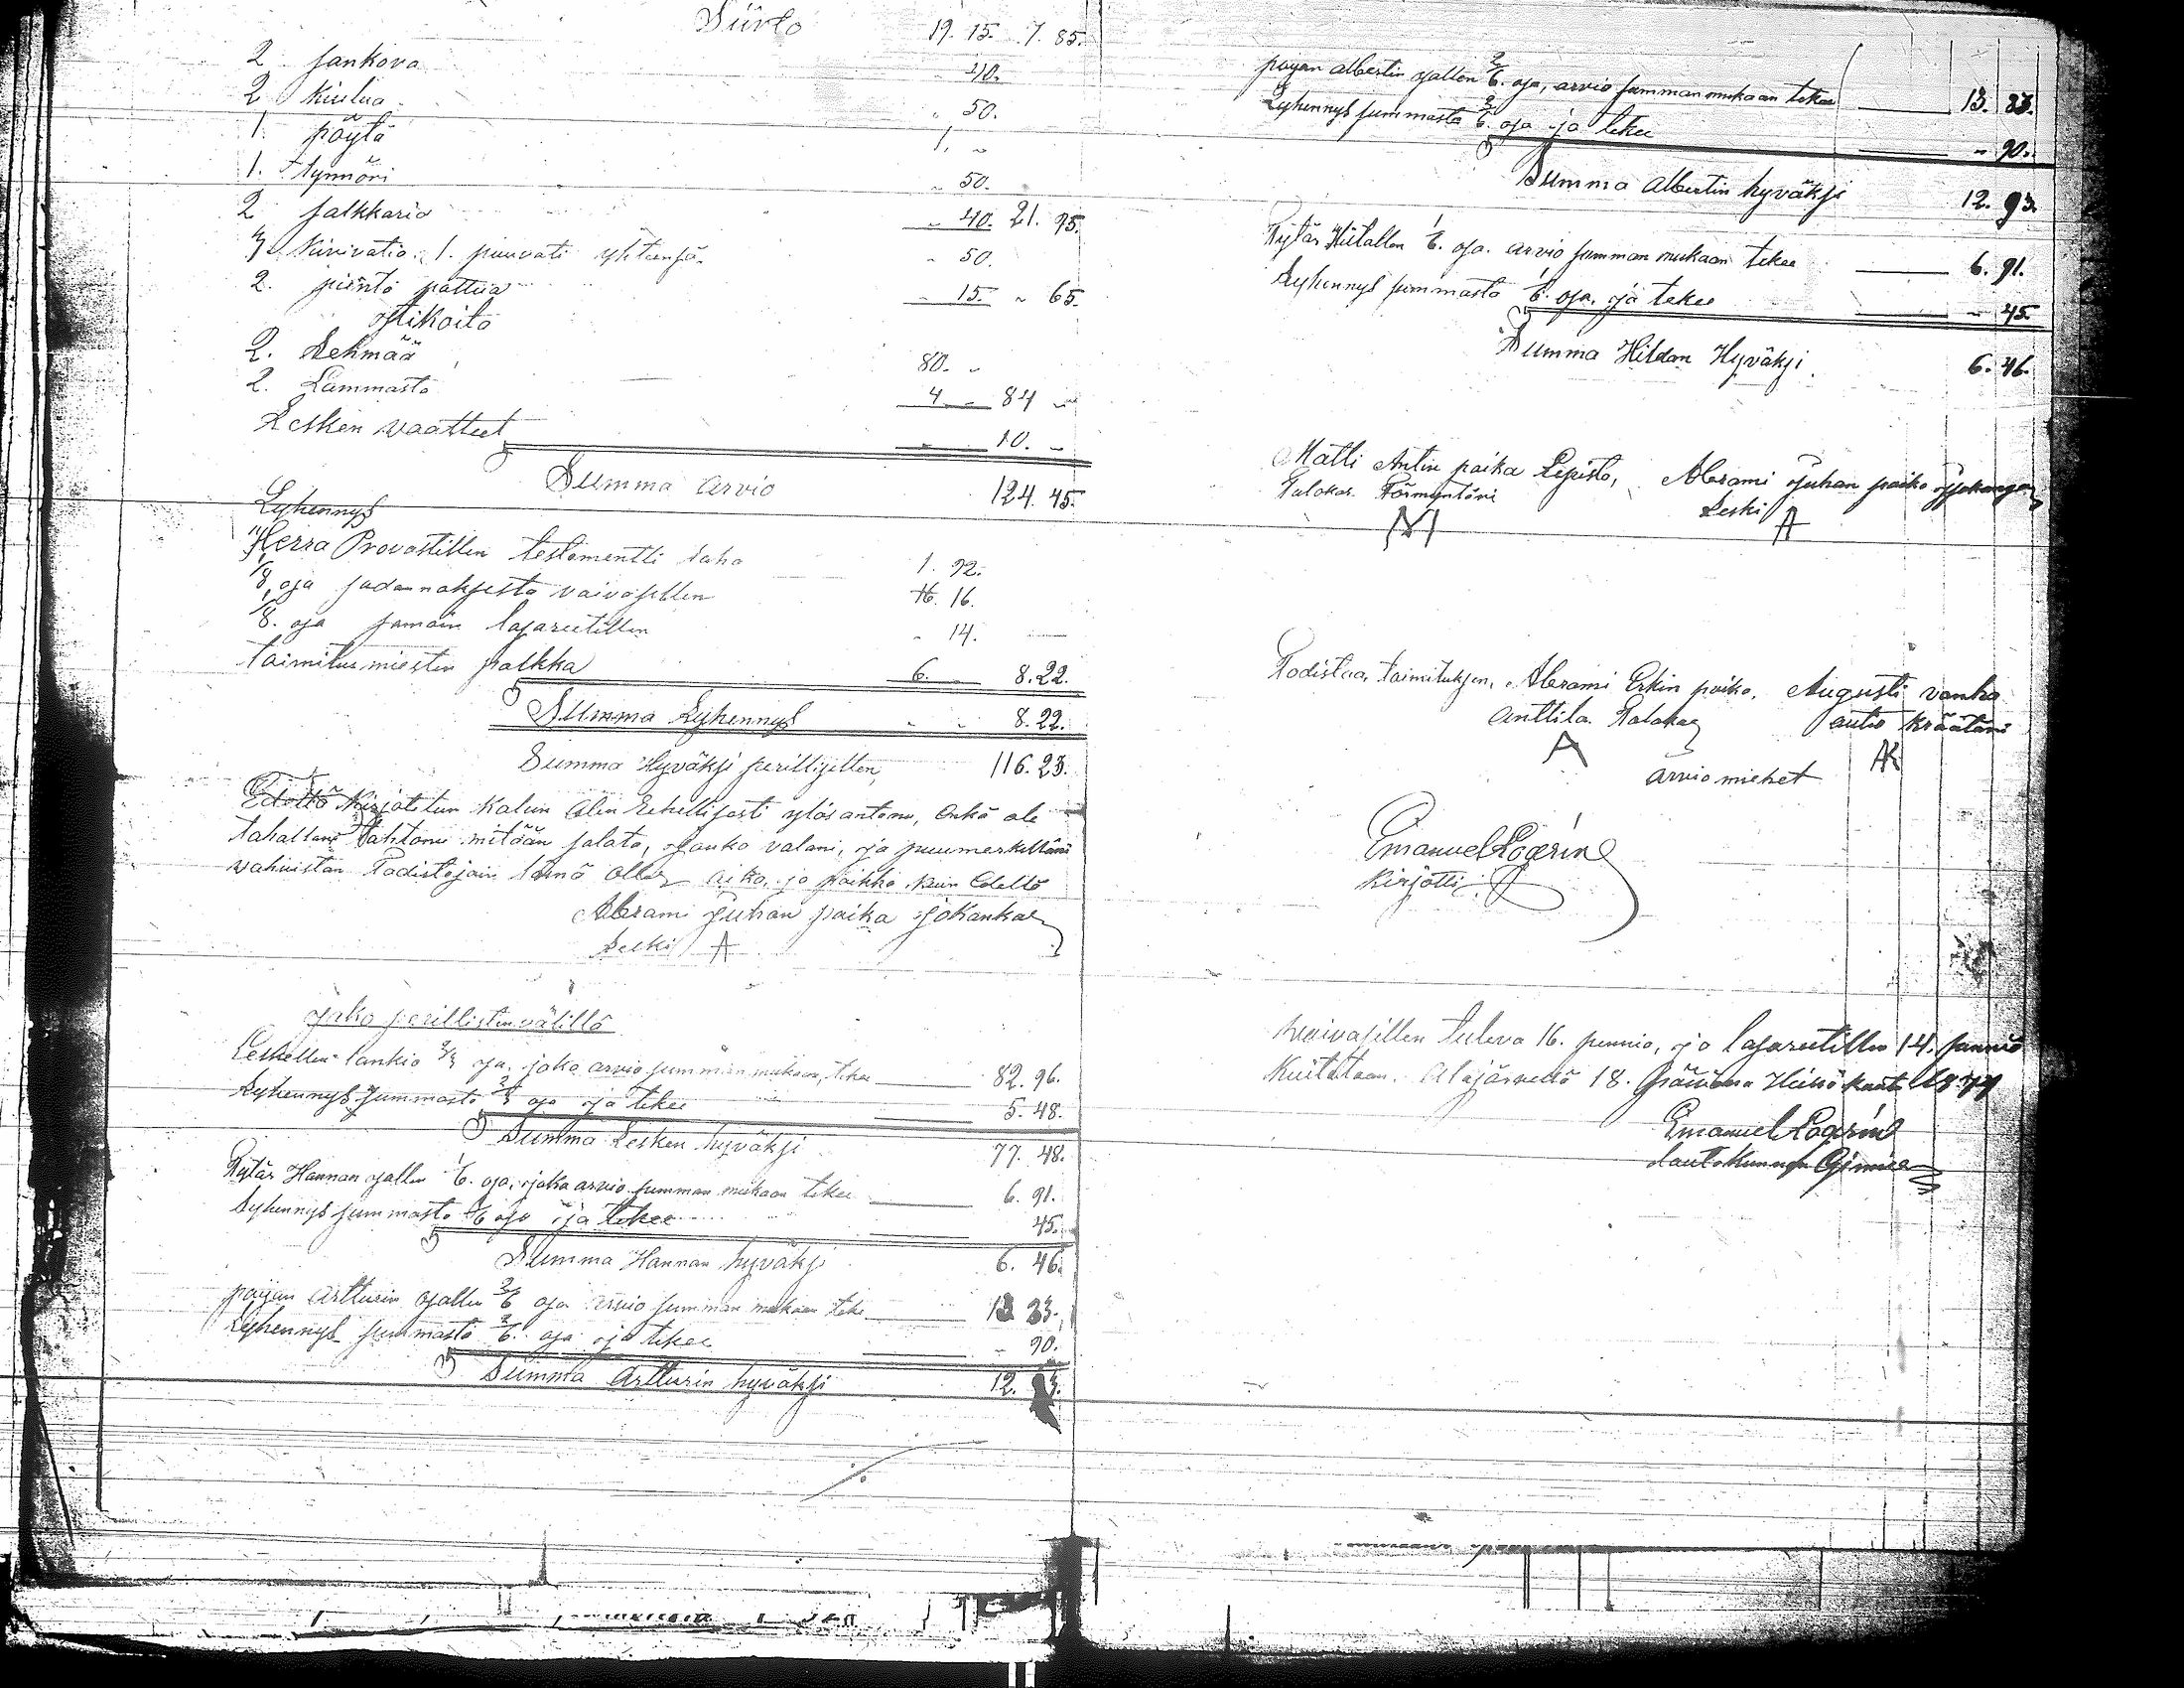 Siirto 19. 15. 7. 85.
2 sankova " 40.
2 kiulua " 50.
1. pöytä 1, "
1. tynnöri " 50.
2 jalkkaria " 40. 21. 95.
kivivatia. 1. puuvati yhteensä " 50.
2. piäntä pattua " 15. " 65.
Otikoita
2. Lehmää 80. "
2. Lammasta 4 " 84 "
Lesken vaatteet " 10. "
Summa arvio 124. 45.
Lyhennys
Herra Provastillen testamentti raha 1. 92.
1/8 osa sadannaksesta vaivasillen 16.
1/8. osa samoin lasareetillen " 14.
Taimitus miesten palkka 6. " 8. 22.
Summa Lyhennys " " 8. 22.
Summa Hyväksi perillisillen 116. 23.
Edellä Kirjoitetun kalun olen Rehellisesti ylös antanu, Enkä ole
tahallani tahtonu mitään salata, jonka valani, ja puumerkilläni
vahvistan Todistajain läsnä ollen aika ja paikka kuin Edellä
Abrami Juhan poika Jokankan
Leski A
Jako perillisten välillä
Leskellen lankia 2/3 osa, joka arvio summan mukaan, tekee 82. 96.
Lyhennys Summasta 2/3 osa ja tekee 5. 48.
Summa Lesken hyväksi 77. 48.
Tytär Hannan osallen 1/6. osa, joka arvio summan mukaan tekee 6. 91.
Lyhennys summasta 1/6 osa ja tekee 45.
Summa Hannan hyväksi 6. 46.
pojan Artturin osallen 2/6 osa arvio summan mukaan tekee 13 83.
Lyhennys summasta 2/6. osa ja tekee " 90.
Summa Artturin hyväksi 12.
pojan albertin osallen 2/6. osa, arvio summan mukaan tekee 13. 83.
Lyhennys summasta 2/6. osa ja tekee " 90.
Summa Albertin hyväksi 12. 93.
Tytär Hiitallen 1/6. osa. arvio summan mukaan tekee 6. 91.
Lyhennys summasta 1/6. osa. ja tekee " 45.
Summa Hildan Hyväksi 6. 46.
Matti Antin poika Lepistö, Abrami Juhan poika Jokangan
Talokas. Leski
M A
Todistaa, taimituksen, Abrami Erkin poika, Augusti vanha
Anttila. Talokas autio kräätäri
A AK
Arvio miehet
Emanuel Logrén
Kirjotti
Waivasillen tuleva 16. penniä, ja lasareetillen 14. penniä
Kuitataan. Alajärvellä 18. päivänä Heinä kuuta 1877
Emanuel Logrén
Lautakunnan Esimies